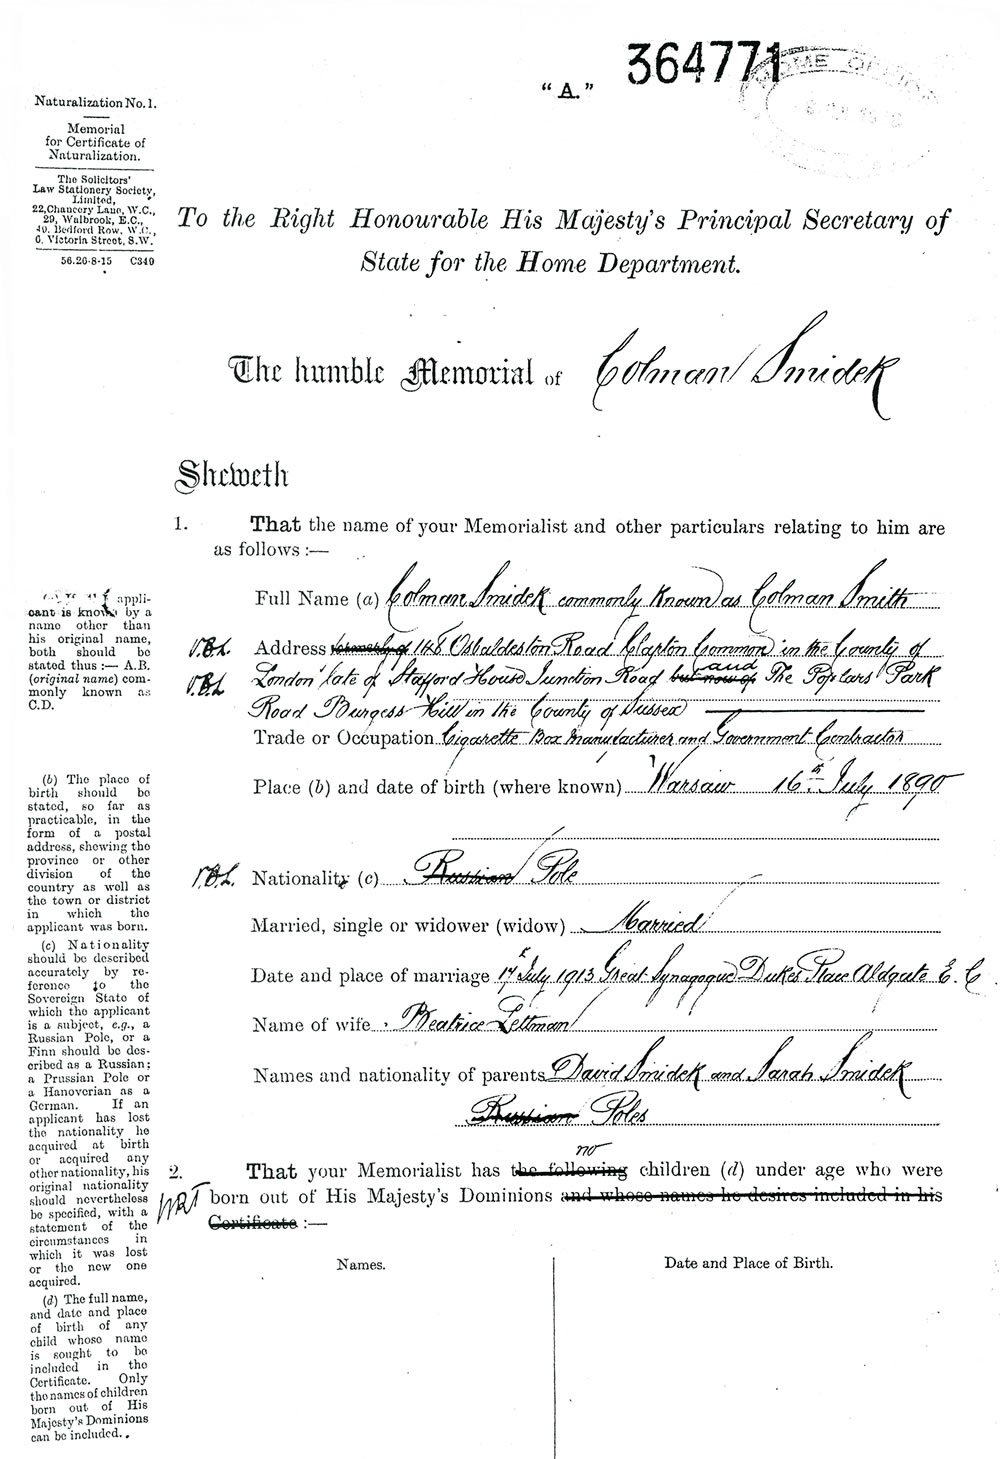 364771
"A."
HOME OFFICE
Naturalization No. 1.
Memorial
for Certificate of
Naturalization.
The Solicitors'
Law Stationery Society,
Limited,
22, Chancery Lane, W.C.,
29, Walbrook, E.C.,
49, Bedford Row, W.C.,
6, Victoria Street, S.W.
56.26-8-15 C340
To the Right Honourable His Majesty's Principal Secretary of
State for the Home Department.
The humble Memorial of Colman Smidek
Sheweth
1. That the name of your Memorialist and other particulars relating to him are
as follows :—
appli-
cant is known by a
name other than
his original name,
both should be
stated thus :— A.B.
(original name) com-
monly known as
C.D.
Full Name (a) Colman Smidek commonly known as Colman Smith
Address formerly of 148 Osbaldeston Road Clapton Common in the County of
London late of Stafford House Junction Road but now of and The Poplars Park
Road Burgess Hill in the County of Sussex
Trade or Occupation Cigarette Box Manufacturer and Government Contractor
Place (b) and date of birth (where known) Warsaw 16th July 1890
(b) The place of
birth should be
stated, so far as
practicable, in the
form of a postal
address, shewing the
province or other
division of the
country as well as
the town or district
in which the
applicant was born.
Nationality (c) Russian Pole
Married, single or widower (widow) Married
Date and place of marriage 17th July 1913 Great Synagogue Dukes Place Aldgate E.C
Name of wife Beatrice Lettman
Names and nationality of parents David Smidek and Sarah Smidek
Russian Poles
(c) Nationality
should be described
accurately by re-
ference to the
Sovereign State of
which the applicant
is a subject, e.g., a
Russian Pole, or a
Finn should be des-
cribed as a Russian;
a Prussian Pole or
a Hanoverian as a
German. If an
applicant has lost
the nationality he
acquired at birth
or acquired any
other nationality, his
original nationality
should nevertheless
be specified, with a
statement of the
circumstances in
which it was lost
or the new one
acquired.
no
2. That your Memorialist has the following children (d) under age who were
born out of His Majesty's Dominions and whose names he desires included in his
Certificate :—
Names. Date and Place of Birth.
(d) The full name,
and date and place
of birth of any
child whose name
is sought to be
included in the
Certificate. Only
the names of children
born out of His
Majesty's Dominions
can be included.